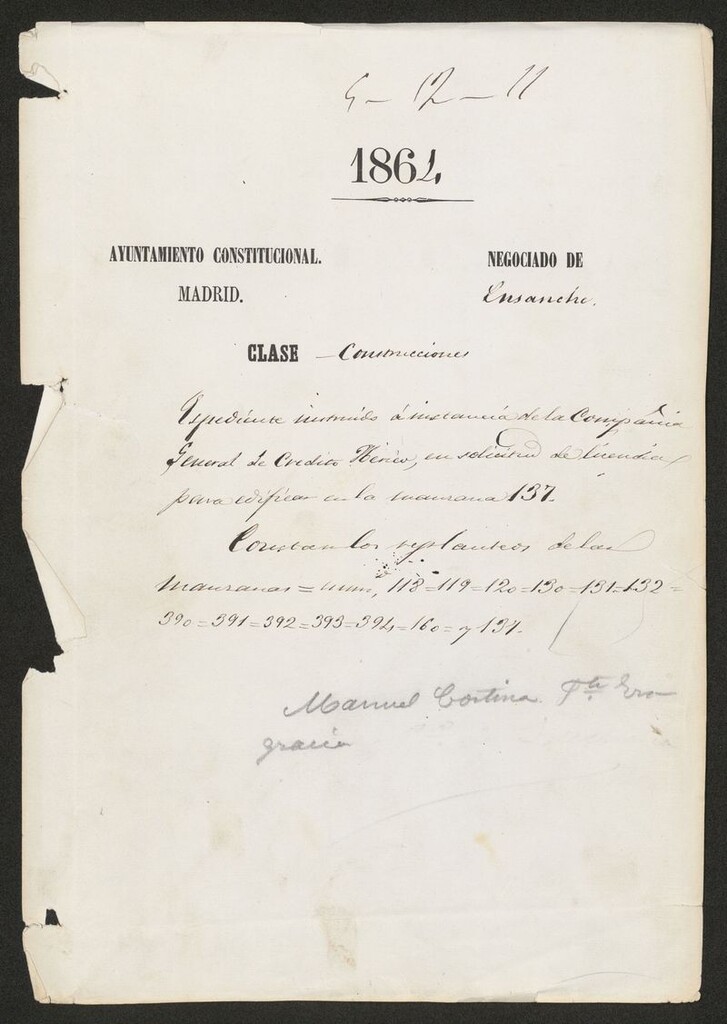 4 - 12 - 11
1864
AYUNTAMIENTO CONSTITUCIONAL.
MADRID.
NEGOCIADO DE
Ensanche.
CLASE – Construcciones
Expediente instruido á instancia de la Compañia
General de Credito Ibérico, en solicitud de licencia
para edificar en la manzana 137.
Constan los replanteos de las
manzanas = num, 118=119=120=130=131=132=
390=391=392=393=394=160= y 137.
Manuel Cortina
gracia